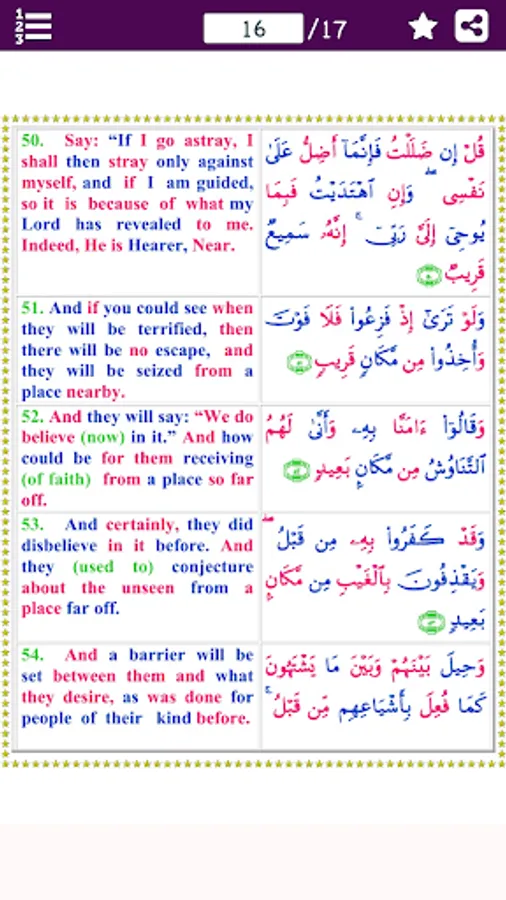 1
2
3
16 /17
50. Say: “If I go astray, I
shall then stray only against
myself, and if I am guided,
so it is because of what my
Lord has revealed to me.
Indeed, He is Hearer, Near.
قُلْ إِن ضَلَلْتُ فَإِنَّمَآ أَضِلُّ عَلَىٰ
نَفْسِى ۖ وَإِنِ ٱهْتَدَيْتُ فَبِمَا
يُوحِىٓ إِلَىَّ رَبِّىٓ ۚ إِنَّهُۥ سَمِيعٌ
قَرِيبٌ ٥٠
51. And if you could see when
they will be terrified, then
there will be no escape, and
they will be seized from a
place nearby.
وَلَوْ تَرَىٰٓ إِذْ فَزِعُوا۟ فَلَا فَوْتَ
وَأُخِذُوا۟ مِن مَّكَانٍ قَرِيبٍ ٥١
52. And they will say: “We do
believe (now) in it.” And how
could be for them receiving
(of faith) from a place so far
off.
وَقَالُوٓا۟ ءَامَنَّا بِهِۦ وَأَنَّىٰ لَهُمُ
ٱلتَّنَاوُشُ مِن مَّكَانٍۭ بَعِيدٍ ٥٢
53. And certainly, they did
disbelieve in it before. And
they (used to) conjecture
about the unseen from a
place far off.
وَقَدْ كَفَرُوا۟ بِهِۦ مِن قَبْلُ ۖ
وَيَقْذِفُونَ بِٱلْغَيْبِ مِن مَّكَانٍۭ
بَعِيدٍ ٥٣
54. And a barrier will be
set between them and what
they desire, as was done for
people of their kind before.
وَحِيلَ بَيْنَهُمْ وَبَيْنَ مَا يَشْتَهُونَ
كَمَا فُعِلَ بِأَشْيَاعِهِم مِّن قَبْلُ ۚ